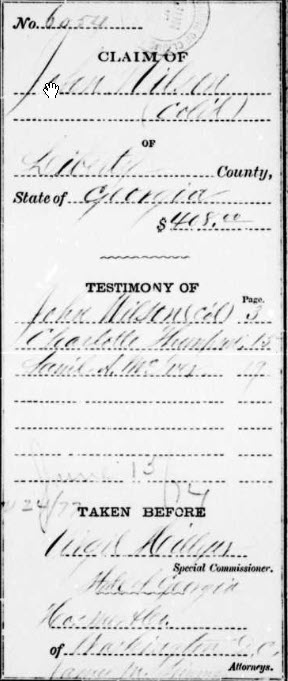 No. 6954
CLAIM OF
John Wilson
(Col'd)
OF
Liberty County,
State of Georgia
$408.00
TESTIMONY OF
Page.
John Wilson (Col'd) 3
Charlotte 15
Saml. A. McIver 19
June 13/74
24/77
TAKEN BEFORE
Virgil Hillyer
Special Commissioner.
State of Georgia
of Washington D.C.
James M.
Attorneys.